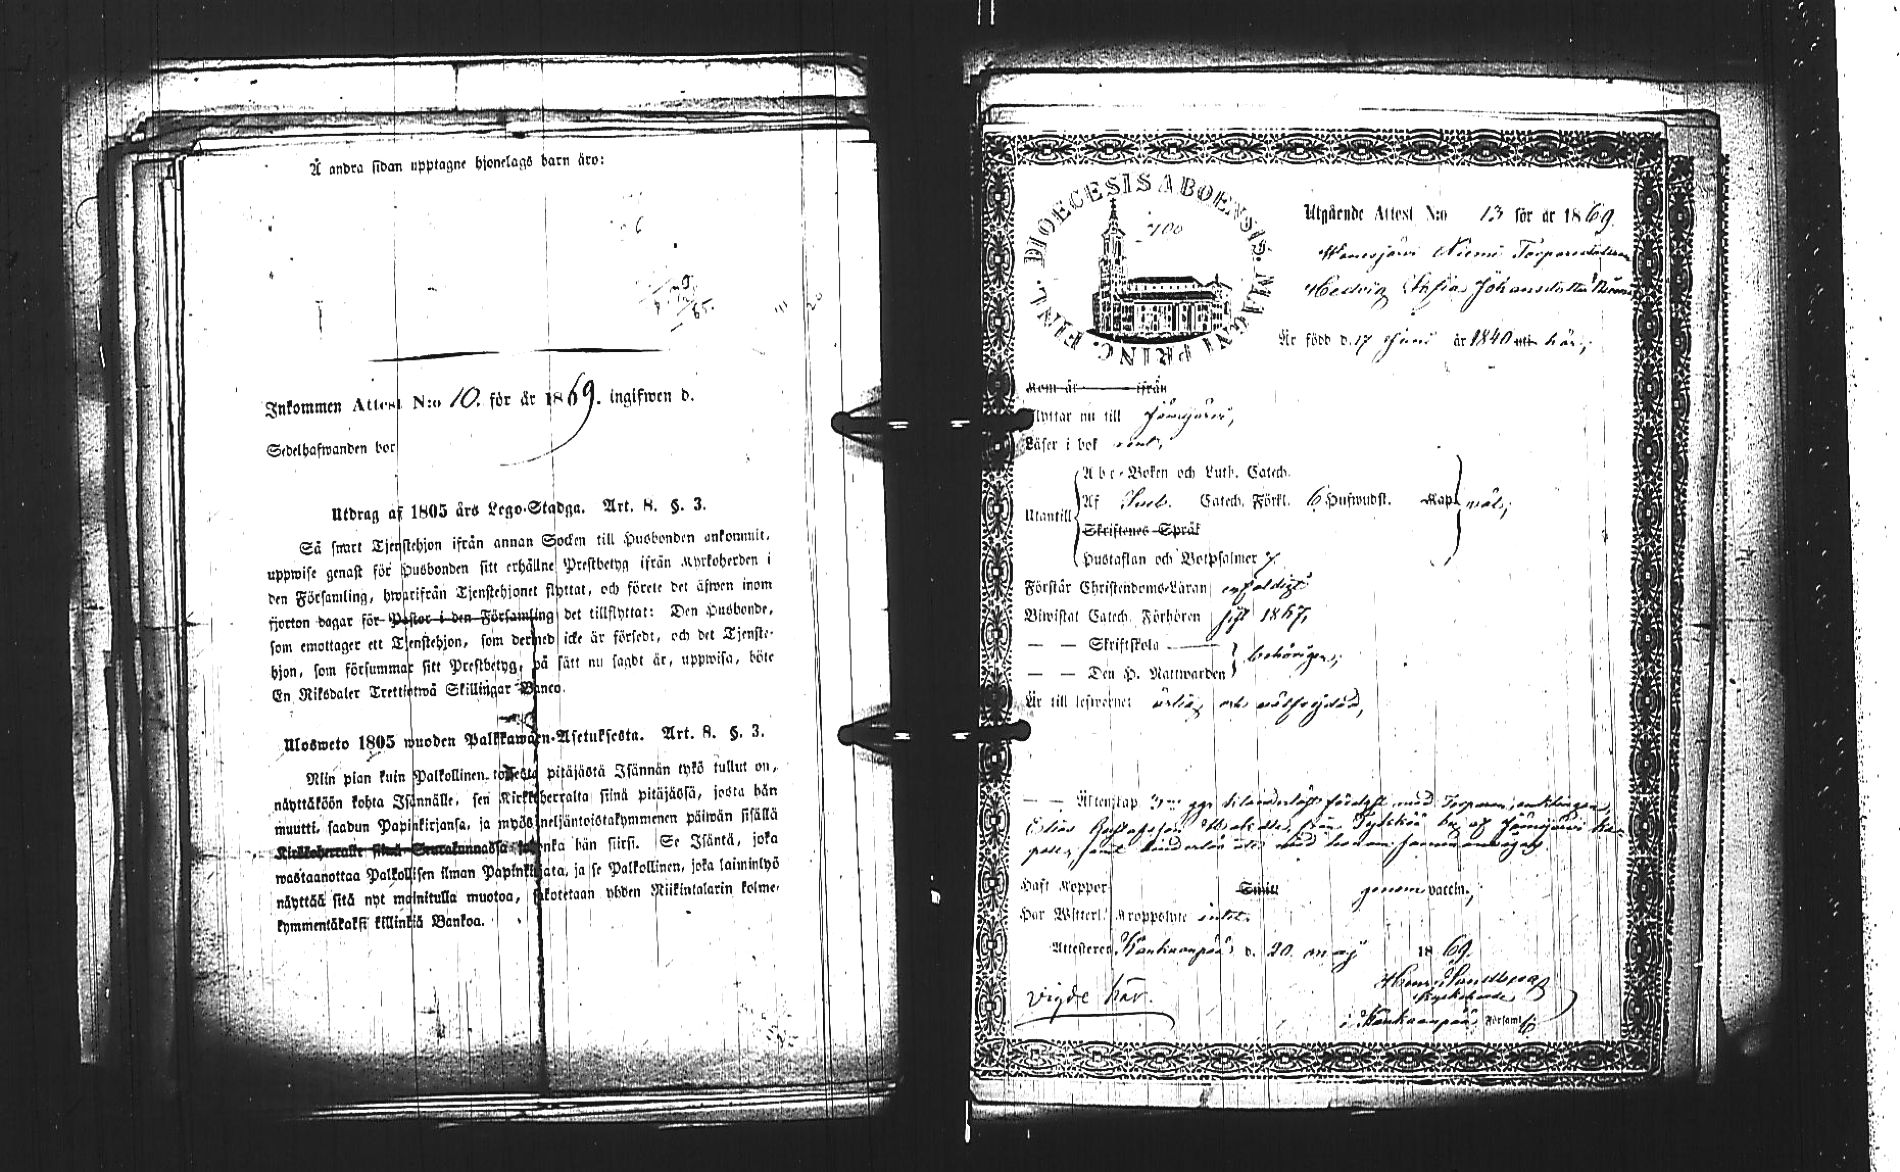 Å andra sidan upptagne hjonelags barn äro:
Inkommen Attest N:o 10. för år 1869. ingifwen d.
Sedelhafwanden bor
Utdrag af 1805 års Lego-Stadga. Art. 8. §. 3.
Så snart Tjenstehjon ifrån annan Socken till Husbonden ankommit,
uppwise genast för Husbonden sitt erhållne Prestbetyg ifrån Kyrkoherden i
den Församling, hwarifrån Tjenstehjonet flyttat, och förete det äfwen inom
fjorton dagar för Pastor i den Församling det tillflyttat: Den Husbonde,
som emottager ett Tjenstehjon, som dermed icke är försedt, och det Tjenste-
hjon, som försummar sitt Prestbetyg, på sätt nu sagdt är, uppwisa, böte
En Riksdaler Trettiotwå Skillingar Banco.
Ulosweto 1805 wuoden Palkkawäen-Asetuksesta. Art. 8. §. 3.
Niin pian kuin Palkollinen toisesta pitäjästä Isännän tykö tullut on,
näyttäköön kohta Isännälle, sen Kirkkoherralta siinä pitäjässä, josta hän
muutti, saadun Papinkirjansa, ja myös neljäntoistakymmenen päiwän sisällä
Kirkkoherralle siinä Seurakunnassa johonka hän siirsi. Se Isäntä, joka
wastaanottaa Palkollisen ilman Papinkirjata, ja se Palkollinen, joka laiminlyö
näyttää sitä nyt mainitulla muotoa, sakotetaan yhden Riikintalarin kolme-
kymmentäkaksi killinkiä Bankoa.
DIOECESIS ABOENSIS. MAGNI PRINC. FINL.
Utgående Attest N:o 13 för år 1869.
Niemi Torparedottren
Hedvig Sofia Johansdotter
Är född d. 17 Juni år 1840 uti här,
Kom år ifrån
Flyttar nu till Jämijärvi,
Läser i bok
Utantill
Abc-Boken och Luth. Catech.
Af Catech. Förkl. 6 Hufwudst. Kap. väl,
Skriftenes Språk
Hustaflan och Botpsalmer 7.
Förstår Christendoms-Läran enfaldigt
Biwistat Catech. Förhören sist 1867,
— — Skriftskola
— — Den H. Nattwarden behörigen,
Är till lefwernet ärlig och välfrejdad,
— — Äktenskap med
Elias Gustafsson från af Jämijärvi
Haft Koppor Smitt genom vaccin,
Har Witterl. Kroppslyte intet.
Attesterar Kankaanpää d. 20 maj 1869.
Sandberg
Kyrkoherde
i Kankaanpää Församl.
Vigde här.